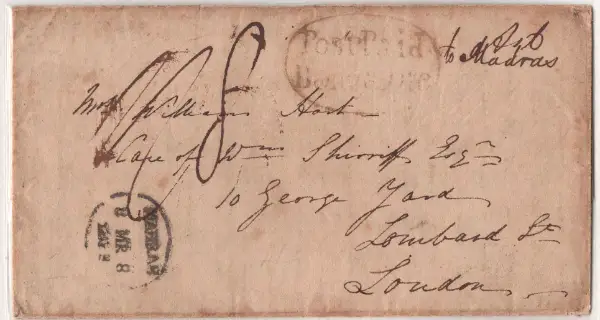 Post Paid
to Madras
Mrs. William Hart
Care of Wm Shirriff Esqre
10 George Yard
Lombard St
London
MR 8